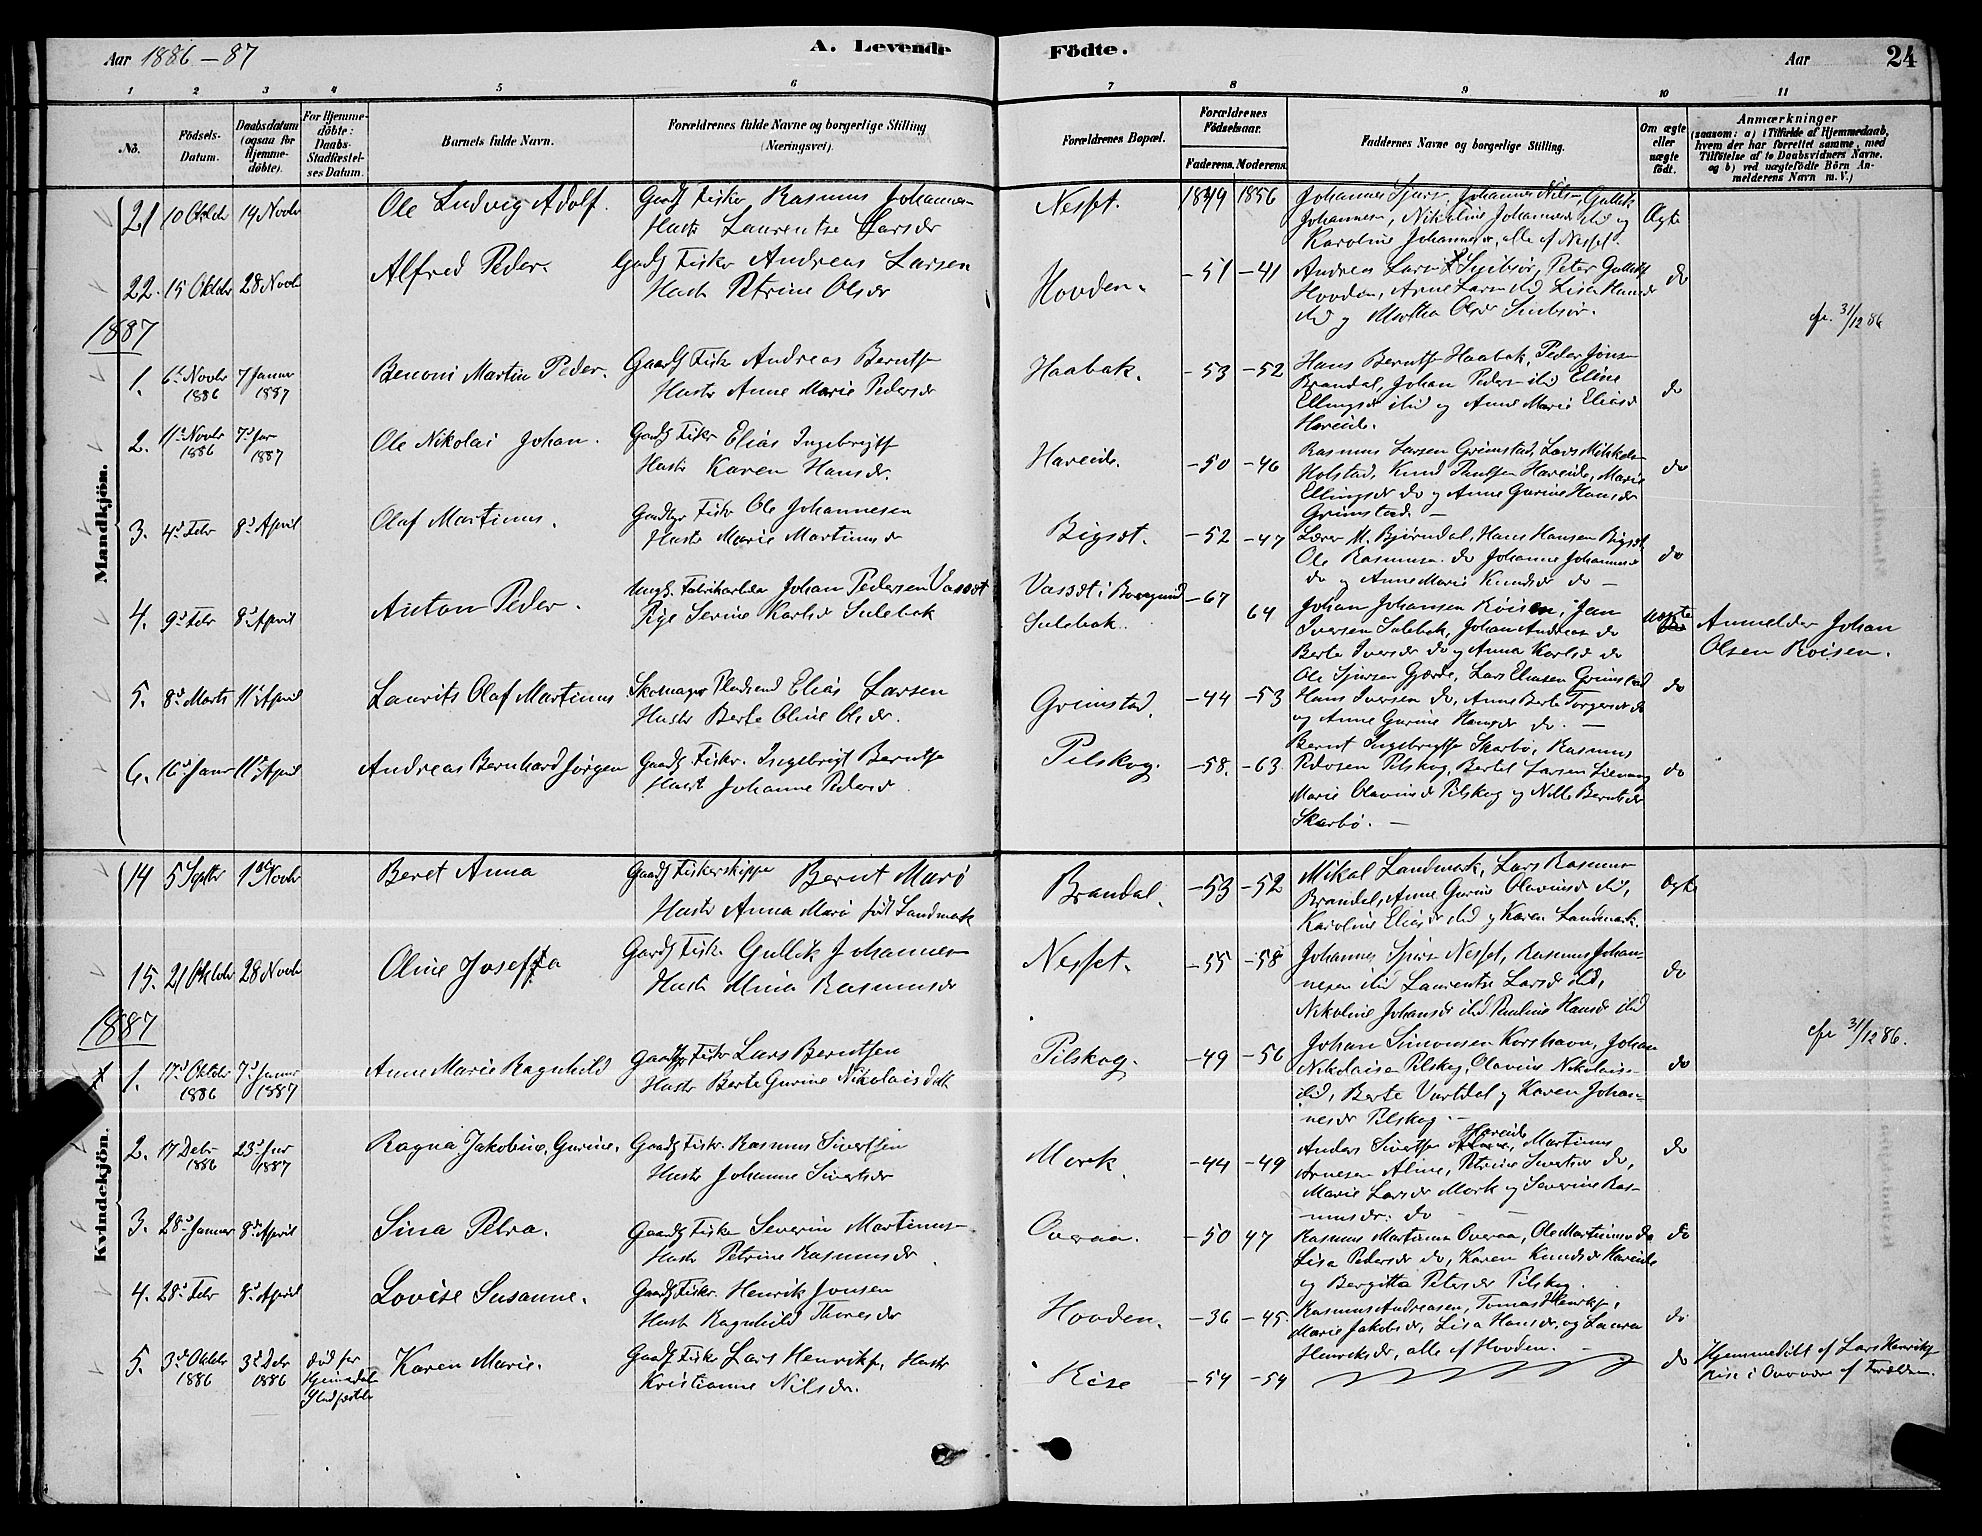 Aar 1886-87
A. Levende
Födte.
Aar
24
1 2 3 4 5 6 7 8 9 10 11
No.
Födsels-Datum.
Daabsdatum (ogsaa for Hjemme-döbte).
For Hjemme-döbte: Daabs-Stadfæstel-ses Datum.
Barnets fulde Navn.
Forældrenes fulde Navne og borgerlige Stilling (Næringsvei).
Forældrenes Bopæl.
Forældrenes Födselsaar.
Faderens. Moderens.
Faddernes Navne og borgerlige Stilling.
Om ægte eller uægte födt.
Anmærkninger
(saasom: a) i Tilfælde af Hjemmedaab, hvem der har forrettet samme, med Tilföielse af to Daabsvidners Navne, og b) ved uægtefödte Börn An-melderens Navn m. V.)
Mandkjön.
21 10 Oktbr 14 Novbr Ole Ludvig Adolf. Gaardf Fisker Rasmus Johannes-
Hustr Laurentse Larsdr
Nesset. 1849 1856
Johannes Sjurs-, Johannes Nils- Gullik
Johannesen, Nikoline Johannesdr ibid og
Karoline Johannesdr, alle af Nesset.
Ægte
22. 15 Oktbr 28 Novbr Alfred Peder. Gaardf Fisker Andreas Larsen
Hustr Petrine Olsdr
Hovden. -51 -41
Andreas Lars- , Peter Gullikf
Hovden, Arne Larsen ibid Lisa Hansdr
ibid og Martha Olsdr
do
1887
cfr. 31/12 86
1. 6te Novbr 1886 7 Januar 1887 Benoni Martin Peder. Gaardf Fisker Andreas Berntf
Hustr Anne Marie Pedersdr
Haabak. -53 -52
Hans Berntf Haabak, Peder Jöns-
Brandal, Johan Peders- ibid Eline
Ellingsdr ibid og Anne Marie Eliasdr
Hareide.
do
2. 11te Novbr 1886 7de Jar 1887 Ole Nikolai Johan. Gaardf Fisker Elias Ingebrigtf
Hustr Karen Hansdr.
Hareide. -50 -46
Rasmus Larsen Grimstad, Lars Mikkels-
Holstad, Knud Paulsen Hareide, Marie
Ellingsdr do og Anne Gurine Hansdr
Grimstad. -
do
3. 4de Febr 8de April Olaf Martinus. Gaardbr Fisker Ole Johannesen
Hustr Marie Martinusdr
Bigset. -52 -47
Lærer M. Björndal, Hans Hansen Bigset,
Ole Rasmusen do Johanne Johannesdr
do og Anne Marie Knudsdr do -
do
4. 9de Febr 8de April Anton Peder. Ungk. Fabrikarbeider Johan Pedersen Vasset
Pige Serine Karlsdr Sulebak
Vasset i Borgund
Sulebak. -67 64
Johan Johansen Röisen, Jan
Iversen Sulebak, Johan Andreas do
Berte Iversdr do og Anna Karlsdr do
uægte
Anmelder Johan
Olsen Roisen.
5. 8de Marts 11te April Laurits Olaf Martinus Skomager Pladsmd Elias Larsen
Hustr Berte Oline Olsdr.
Grimstad. -44 -53
Ole Sjursen Gjerde, Lars Eliasen Grimstad
Hans Iversen do, Anne Berte Torgersdr do
og Anne Gurine Hansdr do. -
do
6. 16de Januar 11te April Andreas Bernhard Jörgen Gaardf Fisker. Ingebrigt Berntf
Hustr Johanne Pedersdr
Pilskog. -58. -63
Bernt Ingebrigtf Skarbö, Rasmus
Pedersen Pilskog, Bertel Larsen Liavaag
Marie Olavinesdr Pilskog og Nille Berntsdr
Skarbö. -
do
Kvindekjön.
14 5 Septbr 1ste Novbr Beret Anna Gaardf Fiskerskipper Bernt Marö
Hustr Anna Marö födt Landmark
Brandal. -53 -52
Mikal Landmark, Lars Rasmus-
Brandal, Anne Gurine Olavinesdr ibid,
Karoline Eliasdr ibid og Karen Landmark.
Ægte
15. 21 Oktbr 28 Novbr Oline Joseffa Gaardf Fisker Gullik Johannes-
Hustr Mina Rasmusdr
Nesset. -55 -58
Johannes Sjurs- Nesset, Rasmus Johan-
nesen ibid Laurentse Larsdr ibid,
Nikoline Johansdr ibid Pauline Hansdr ibid
do
1887
cfr 31/12 86.
1. 17de Oktbr 1886 7de Januar 1887 Anne Marie Ragnhild Gaardbr Fisker Lars Berntsen
Hustr Berte Gurine Nikolaisdatt
Pilskog. -49 -56
Johan Simonsen Korshavn, Johan
Nikolaisen Pilskog, Olavine Nikolais-
ibid, Berte Vartdal og Karen Johan-
nesdr Pilskog. -
do
2. 17 Debr 1886 23de Jar 1887 Ragna Jakobine Gurine. Gaardf Fisker. Rasmus Sivertsen
Hustr Johanne Sivertsdr
Mork. -44 -49
Anders Sivertsen Hareide, Martinus
Arnesen Aline, Petrine Sivertsdr do,
Marie Larsdr Mork og Severine Ras-
musdr: do -
do
3. 28de Januar 8de April Sina Petra. Gaardf Fisker Severin Martinus-
Hustr Petrine Rasmusdr
Overaa. -50 47
Rasmus Martinusen Overaa, Ole Martinusen do
Lisa Pedersdr do, Karen Knudsdr Hareide
og Bergitta Petersdr Pilskog.
do
4. 28de Febr 8de April Lovise Susanne. Gaardf Fisker. Henrik Jonsen
Hustr Ragnhild Thoresdr
Hovden. -36 -45
Rasmus Andreasen, Tomas Henriksf,
Marie Jakobsdr, Lisa Hansdr, og Laura
Henriksdr, alle af Hovden. -
do
5. 3de Oktbr 1886 3de Debr 1886 död før
Hjemmedaab
Stadfæstelse
Karen Marie. Gaardf Fisker Lars Henrikf, Hustr
Kristianne Nilsdr.
Rise -54 -54
do
Hjemmedöbt af Lars Henrikf
Rise i Overvær af Forældrene.